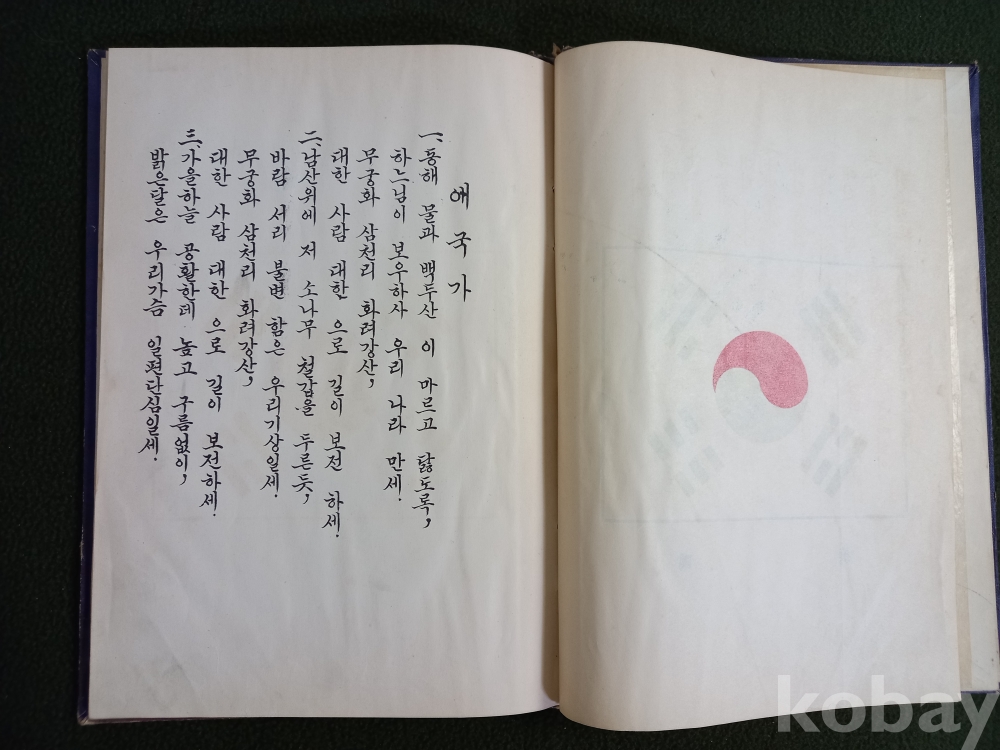 애국가
一、동해 물과 백두산 이 마르고 닳도록,
하느님이 보우하사 우리 나라 만세.
무궁화 삼천리 화려강산,
대한 사람 대한 으로 길이 보전 하세.
二、남산위에 저 소나무 철갑을 두른듯,
바람 서리 불변 함은 우리기상일세.
무궁화 삼천리 화려강산,
대한 사람 대한 으로 길이 보전하세.
三、가을하늘 공활한데 높고 구름없이,
밝은달은 우리가슴 일편단심일세.
kobay